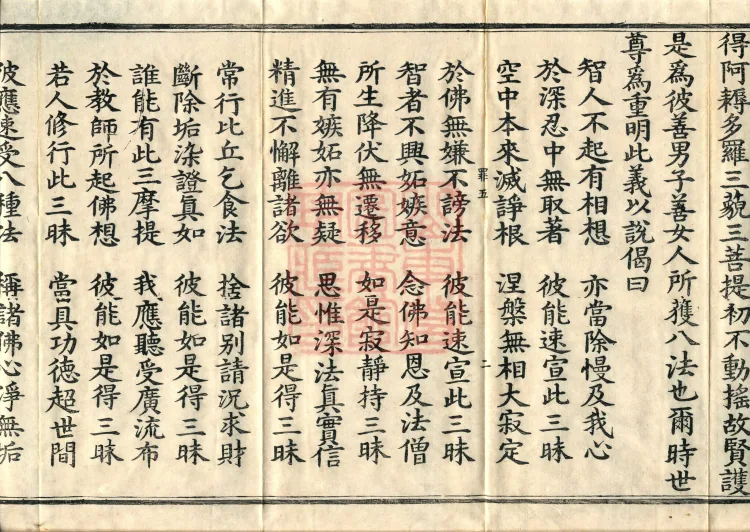 得阿耨多羅三藐三菩提初不動搖故賢護
是爲彼善男子善女人所獲八法也爾時世
尊爲重明此義以說偈曰
智人不起有相想　亦當除慢及我心
於深忍中無取著　彼能速宣此三昧
空中本來滅諍根　涅槃無相大寂定
罪五　二
於佛無嫌不謗法　彼能速宣此三昧
智者不興妬嫉意　念佛知恩及法僧
所生降伏無遷移　如是寂靜持三昧
無有嫉妬亦無疑　思惟深法真實信
精進不懈離諸欲　彼能如是得三昧
常行比丘乞食法　捨諸別請況求財
斷除垢染證真如　彼能如是得三昧
誰能有此三摩提　我應聽受廣流布
於教師所起佛想　彼能如是得三昧
若人修行此三昧　當具功德超世間
彼應速受八種法　稱諸佛心淨無垢